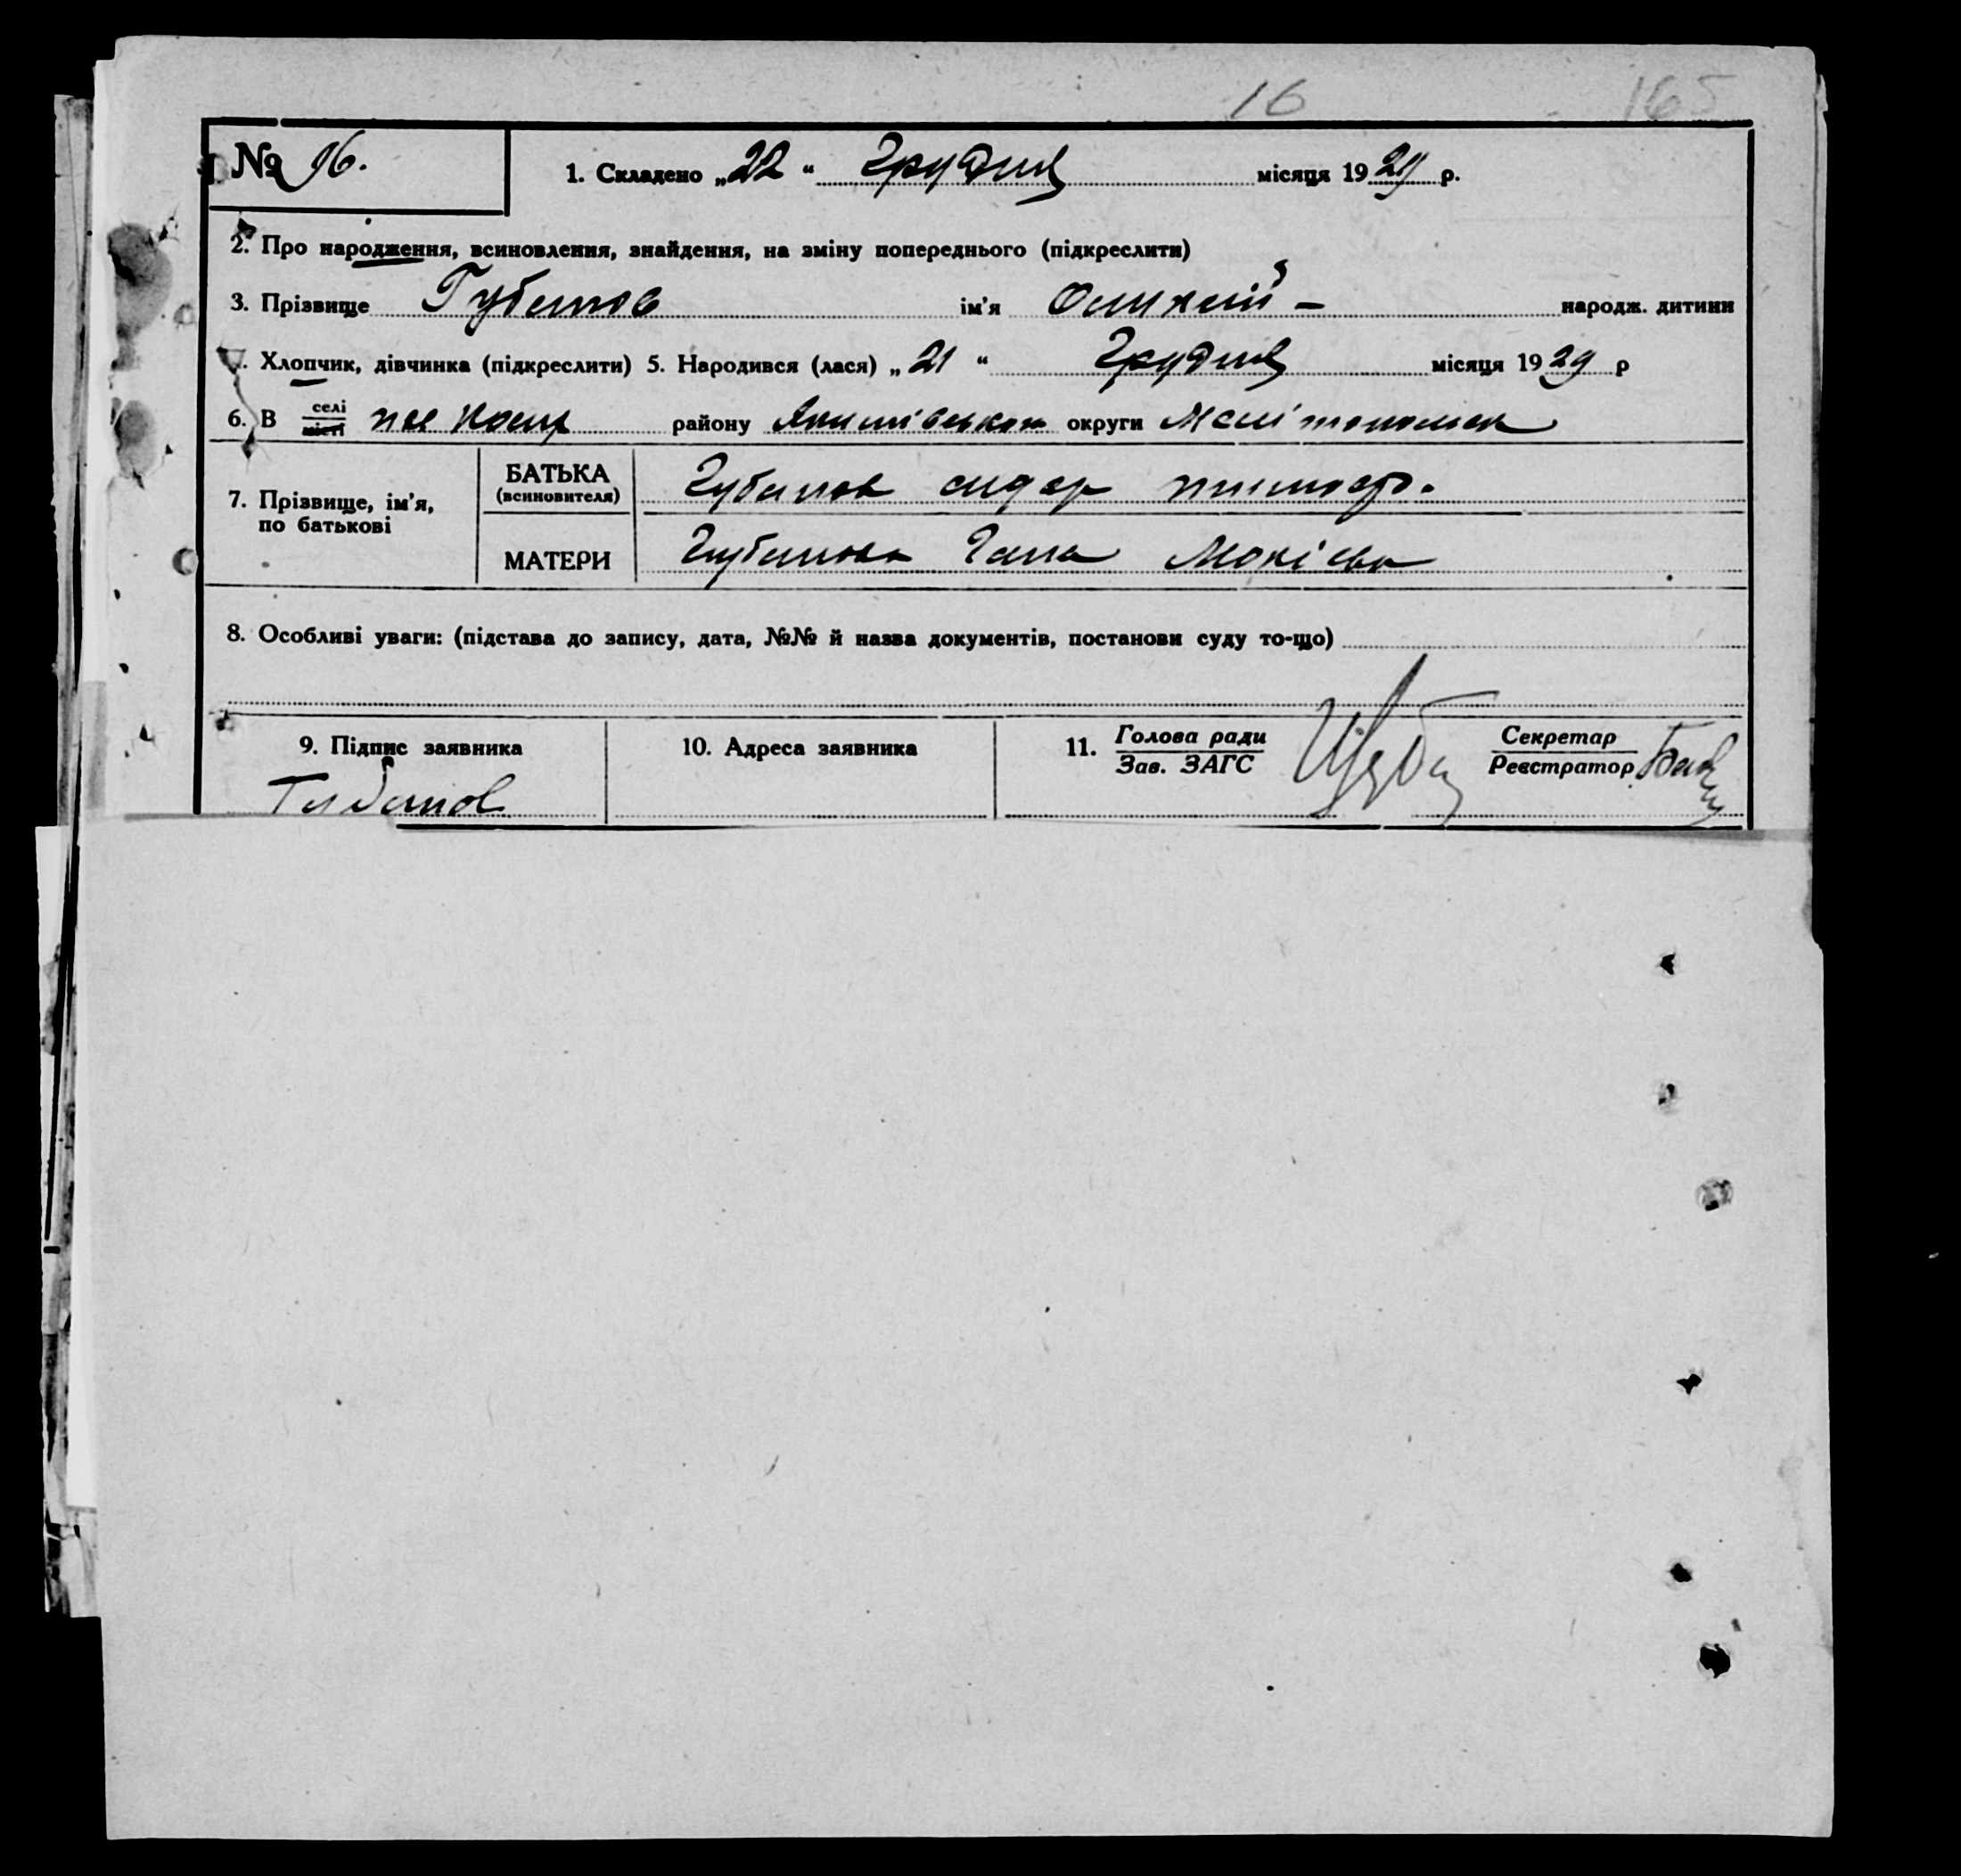 16 165
№ 96. 1. Складено „22“ Грудня місяця 1929 р.
2. Про народження, всиновлення, знайдення, на зміну попереднього (підкреслити)
3. Прізвище Губанов ім'я Олихсій - народж. дитини
Хлопчик, дівчинка (підкреслити) 5. Народився (лася) „21“ Грудня місяця 1929 р
6. В селі місті району Якимівськои округи Мелітопольск
7. Прізвище, ім'я, по батькові
БАТЬКА (всиновителя) Губанов сидор тимоф.
МАТЕРИ Губанова Гана Мокієвн
8. Особливі уваги: (підстава до запису, дата, №№ й назва документів, постанови суду то-що)
9. Підпис заявника 10. Адреса заявника 11. Голова ради Зав. ЗАГС Секретар Реєстратор
Губанов